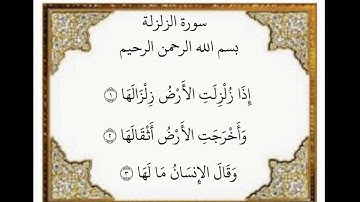 سورة الزلزلة
بسم الله الرحمن الرحيم
إِذَا زُلْزِلَتِ الأَرْضُ زِلْزَالَهَا ۝١
وَأَخْرَجَتِ الأَرْضُ أَثْقَالَهَا ۝٢
وَقَالَ الإِنسَانُ مَا لَهَا ۝٣